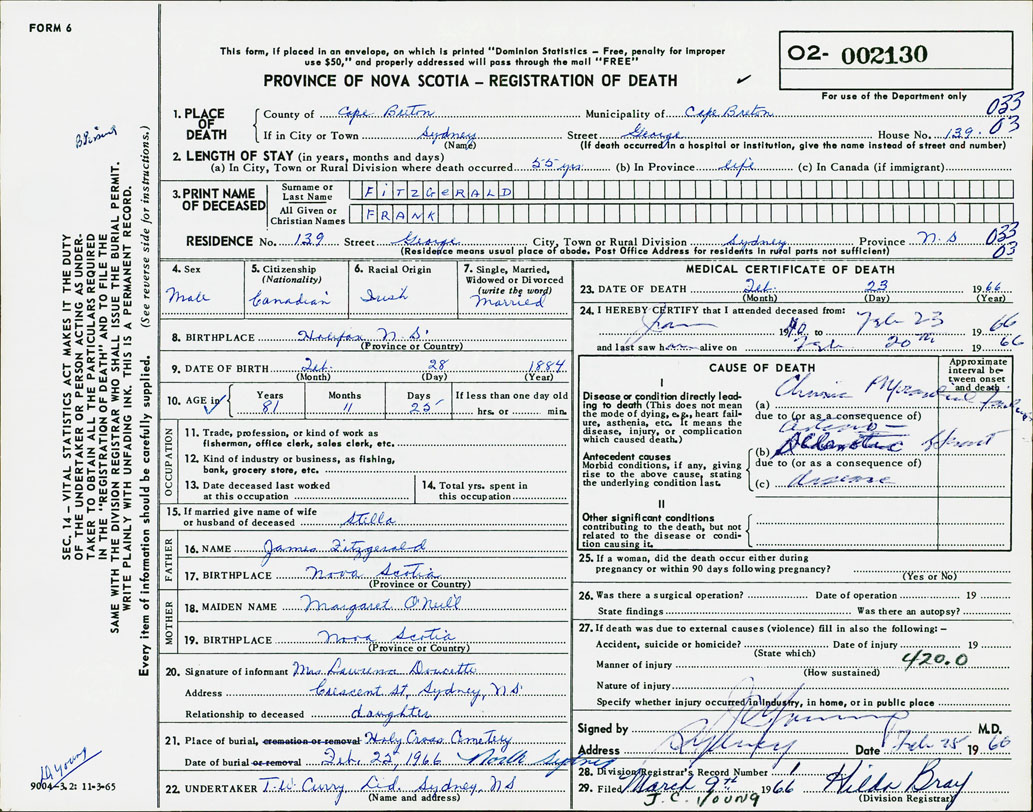 FORM 6
This form, if placed in an envelope, on which is printed "Dominion Statistics – Free, penalty for improper
use $50," and properly addressed will pass through the mail "FREE"
PROVINCE OF NOVA SCOTIA – REGISTRATION OF DEATH
O2- 002130
For use of the Department only
1. PLACE OF DEATH County of Cape Breton Municipality of Cape Breton 033 03
If in City or Town Sydney Street George House No. 139
(Name) (If death occurred in a hospital or institution, give the name instead of street and number)
2. LENGTH OF STAY (in years, months and days)
(a) In City, Town or Rural Division where death occurred 55 yrs. (b) In Province life (c) In Canada (if immigrant)
3. PRINT NAME OF DECEASED
Surname or Last Name FITZGERALD
All Given or Christian Names FRANK
RESIDENCE No. 139 Street George City, Town or Rural Division Sydney Province N.S 033 03
(Residence means usual place of abode. Post Office Address for residents in rural parts not sufficient)
4. Sex Male
5. Citizenship (Nationality) Canadian
6. Racial Origin Irish
7. Single, Married, Widowed or Divorced (write the word) Married
8. BIRTHPLACE Halifax N.S.
(Province or Country)
9. DATE OF BIRTH Feb. 28 1884
(Month) (Day) (Year)
10. AGE in Years 81 Months 11 Days 25 If less than one day old hrs. or min.
OCCUPATION
11. Trade, profession, or kind of work as
fisherman, office clerk, sales clerk, etc.
12. Kind of industry or business, as fishing,
bank, grocery store, etc.
13. Date deceased last worked
at this occupation
14. Total yrs. spent in
this occupation
15. If married give name of wife
or husband of deceased Stella
FATHER
16. NAME James Fitzgerald
17. BIRTHPLACE Nova Scotia
(Province or Country)
MOTHER
18. MAIDEN NAME Margaret O'Neill
19. BIRTHPLACE Nova Scotia
(Province or Country)
20. Signature of informant Mrs. Doucette
Address Crescent St, Sydney, N.S.
Relationship to deceased daughter
21. Place of burial, cremation or removal Holy Cross Cemetery
Date of burial or removal Feb. 25, 1966 North Sydney
22. UNDERTAKER T.W. Curry Ltd. Sydney, NS
(Name and address)
MEDICAL CERTIFICATE OF DEATH
23. DATE OF DEATH Feb. 23 1966
(Month) (Day) (Year)
24. I HEREBY CERTIFY that I attended deceased from:
19 to Feb 23 1966
and last saw h alive on Feb 20th 1966
CAUSE OF DEATH
Approximate interval between onset and death
I
Disease or condition directly leading to death (This does not mean the mode of dying, e.g., heart failure, asthenia, etc. It means the disease, injury, or complication which caused death.)
(a) Chronic Myocardial
due to (or as a consequence of)
Antecedent causes
Morbid conditions, if any, giving rise to the above cause, stating the underlying condition last.
(b) Heart
due to (or as a consequence of)
(c) disease
II
Other significant conditions
contributing to the death, but not related to the disease or condition causing it.
25. If a woman, did the death occur either during
pregnancy or within 90 days following pregnancy?
(Yes or No)
26. Was there a surgical operation? Date of operation 19
State findings Was there an autopsy?
27. If death was due to external causes (violence) fill in also the following:–
Accident, suicide or homicide? Date of injury 19
(State which) 420.0
Manner of injury
(How sustained)
Nature of injury
Specify whether injury occurred in industry, in home, or in public place
Signed by M.D.
Address Sydney Date Feb 25 1966
28. Division Registrar's Record Number
29. Filed March 9th 1966 Hilda Bray
J.C. YOUNG (Division Registrar)
SEC. 14 – VITAL STATISTICS ACT MAKES IT THE DUTY
OF THE UNDERTAKER OR PERSON ACTING AS UNDER-
TAKER TO OBTAIN ALL THE PARTICULARS REQUIRED
IN THE "REGISTRATION OF DEATH" AND TO FILE THE
SAME WITH THE DIVISION REGISTRAR WHO SHALL ISSUE THE BURIAL PERMIT.
WRITE PLAINLY WITH UNFADING INK. THIS IS A PERMANENT RECORD.
Every item of information should be carefully supplied. (See reverse side for instructions.)
9004-3.2: 11-3-65